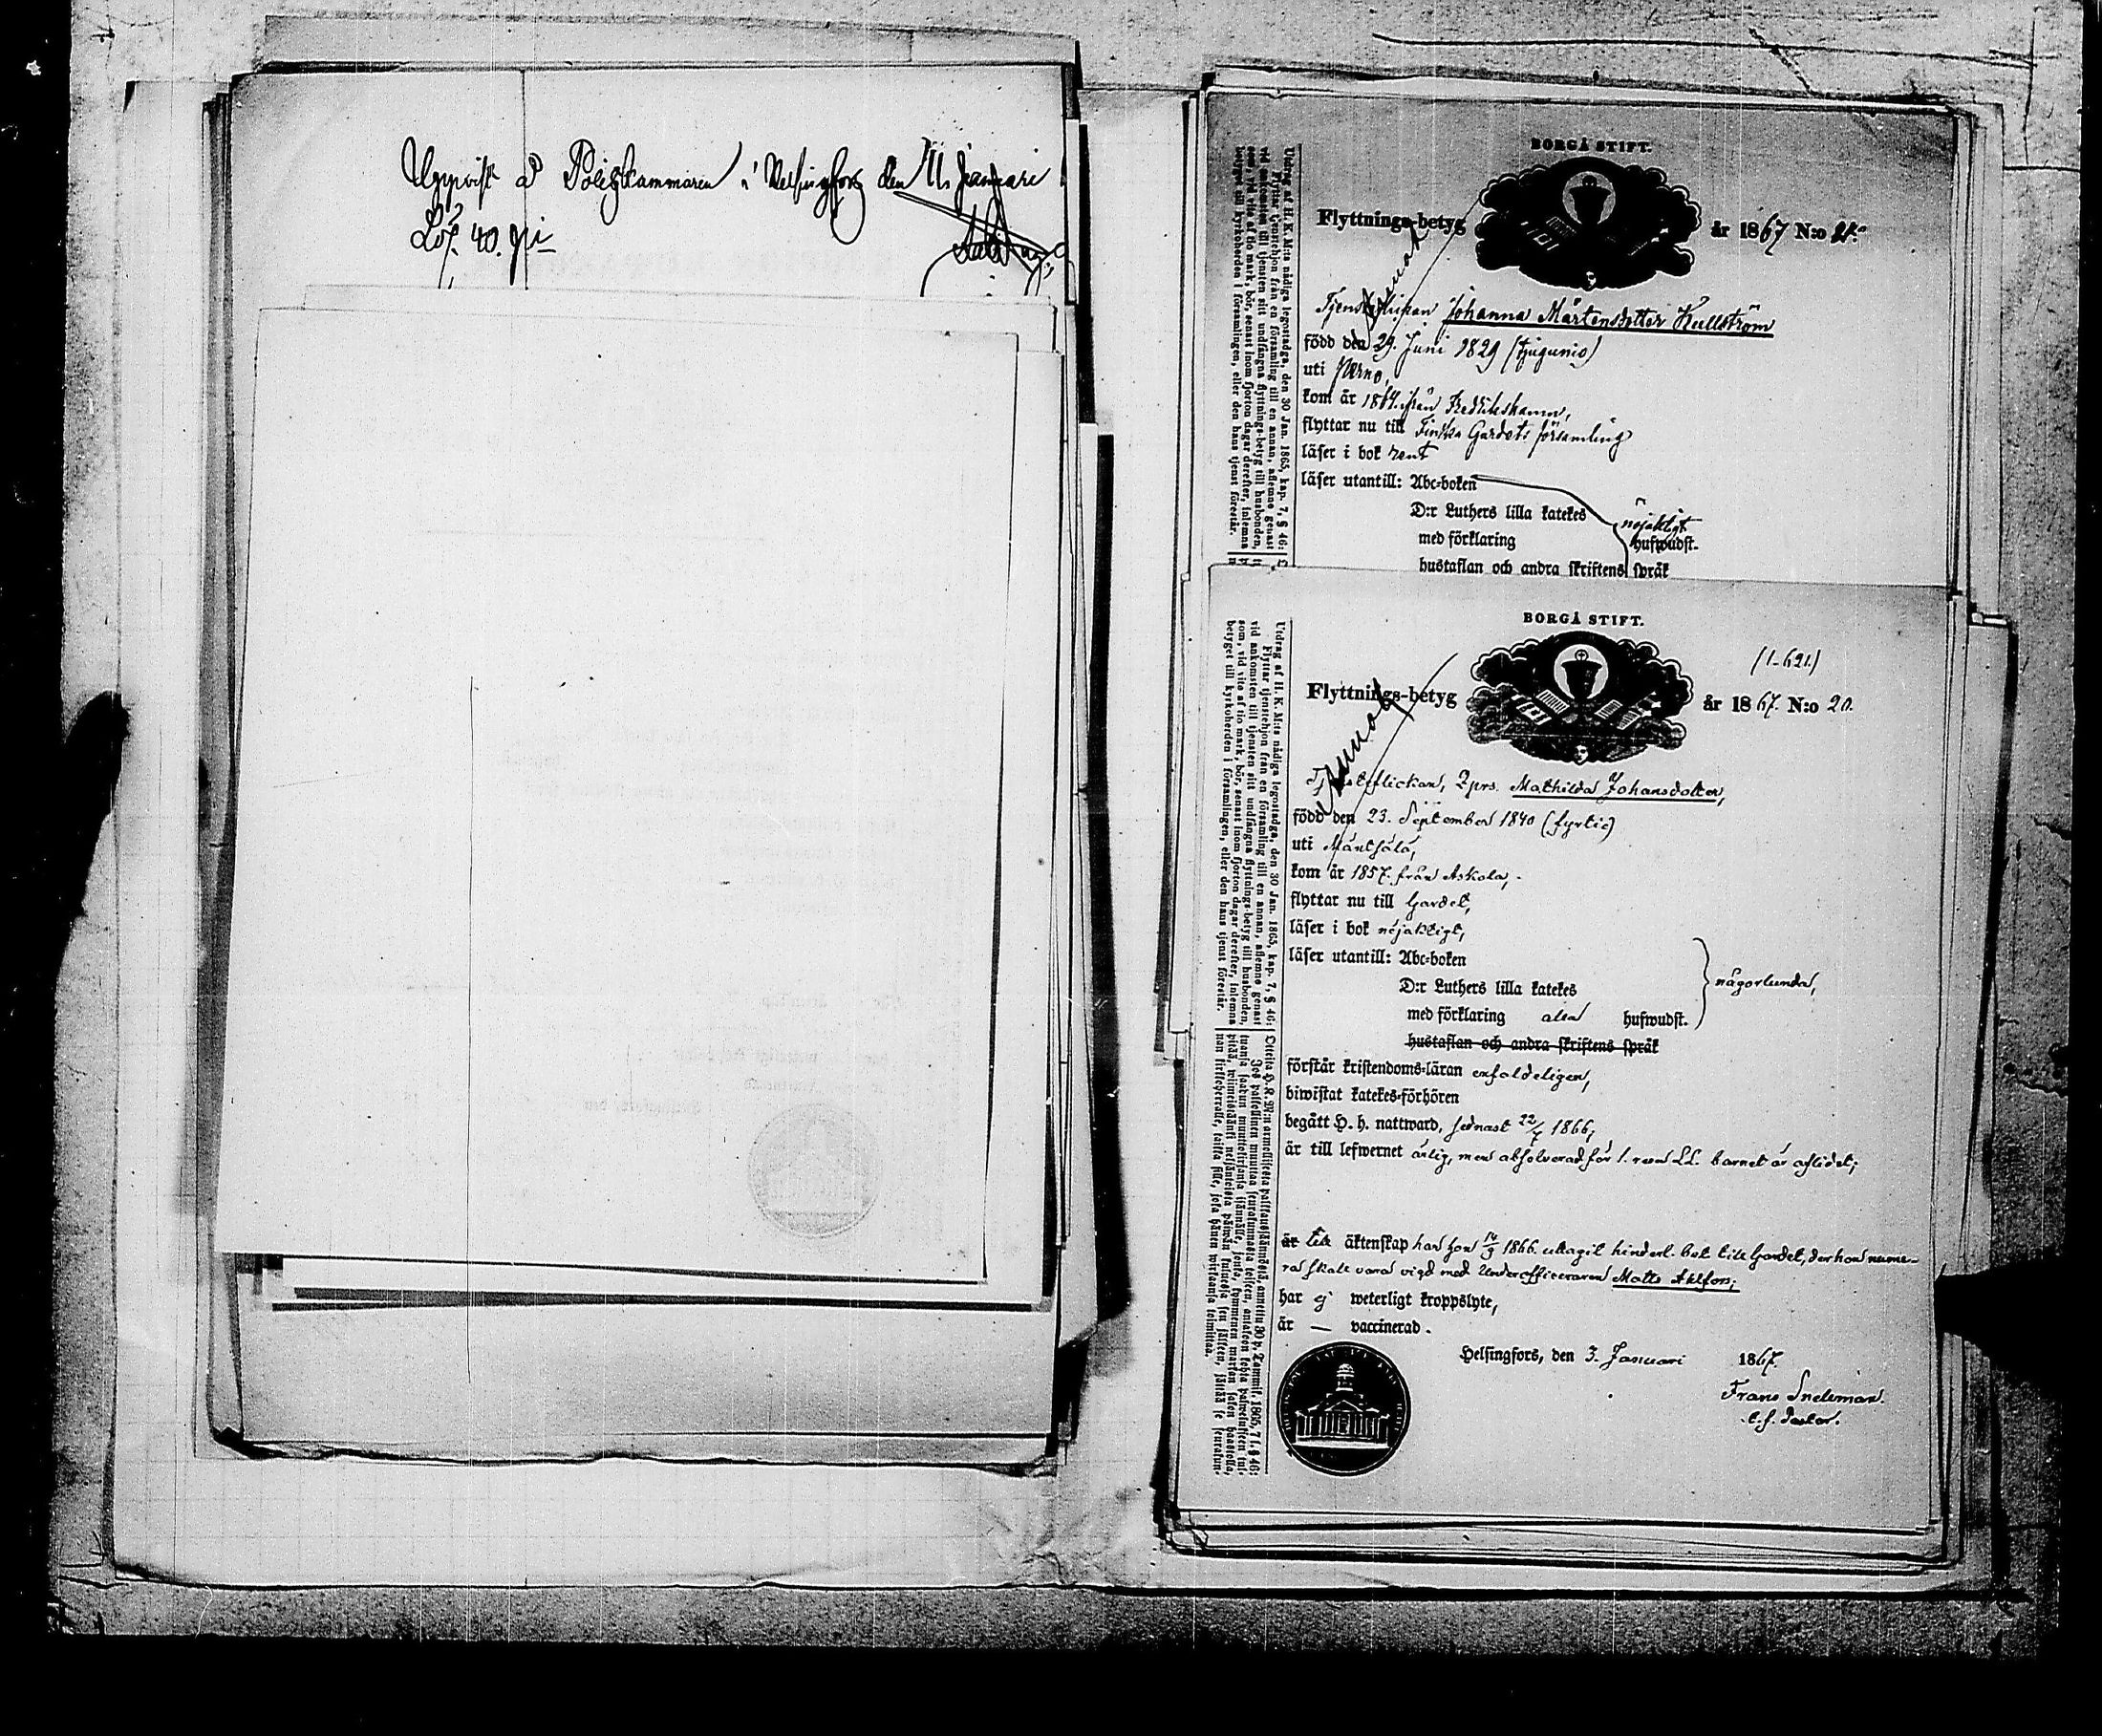 Uppvist å Poliskammaren i Helsingfors den 11 Januari
Löp. 40. p:i
BORGÅ STIFT.
Flyttnings-betyg år 1867 N:o 21.
Johanna Mårtensdotter Kullström
född den 29. Juni 1829 (tjugunio)
uti Perno,
kom år 1864. från Fredrikshamn,
flyttar nu till Finska Gardets församling
läser i bok rent
läser utantill: Abc-boken
D:r Luthers lilla katekes
nöjaktigt
med förklaring hufwudst.
hustaflan och andra skriftens språk
Utdrag af H. K. M:ts nådiga legostadga, den 30 Jan. 1865, kap. 7, § 46:
Flyttar tjenstehjon från en församling till en annan, aflemne genast
vid ankomsten till tjensten sitt undfångna flyttnings-betyg till husbonden,
som, vid vite af tio mark, bör, senast inom fjorton dagar derefter, inlemna
betyget till kyrkoherden i församlingen, eller den hans tjenst förestår.
BORGÅ STIFT.
(1-621)
Flyttnings-betyg år 1867. N:o 20.
Tjensteflickan, 2prs. Mathilda Johansdotter,
född den 23. September 1840 (fyrtio)
uti Mäntsälä,
kom år 1857. från Askola,
flyttar nu till Gardet,
läser i bok nöjaktigt,
läser utantill: Abc-boken
D:r Luthers lilla katekes
någorlunda,
med förklaring alla hufwudst.
hustaflan och andra skriftens språk
förstår kristendoms-läran enfaldeligen,
biwistat katekes-förhören
begått H. h. nattward, senast 22/7 1866,
är till lefwernet ärlig, men absolverad för 1. resan LL. barnet är aflidet;
är till äktenskap har hon 14/9 1866. uttagit hinderl. bet. till Gardet, der hon nume-
ra skall vara vigd med Underofficeraren Matts Ahlfors;
har ej weterligt kroppslyte,
är — vaccinerad.
Helsingfors, den 3. Januari 1867.
Frans Snelman.
t.f. Pastor.
Utdrag af H. K. M:ts nådiga legostadga, den 30 Jan. 1865, kap. 7, § 46:
Flyttar tjenstehjon från en församling till en annan, aflemne genast
vid ankomsten till tjensten sitt undfångna flyttnings-betyg till husbonden,
som, vid vite af tio mark, bör, senast inom fjorton dagar derefter, inlemna
betyget till kyrkoherden i församlingen, eller den hans tjenst förestår.